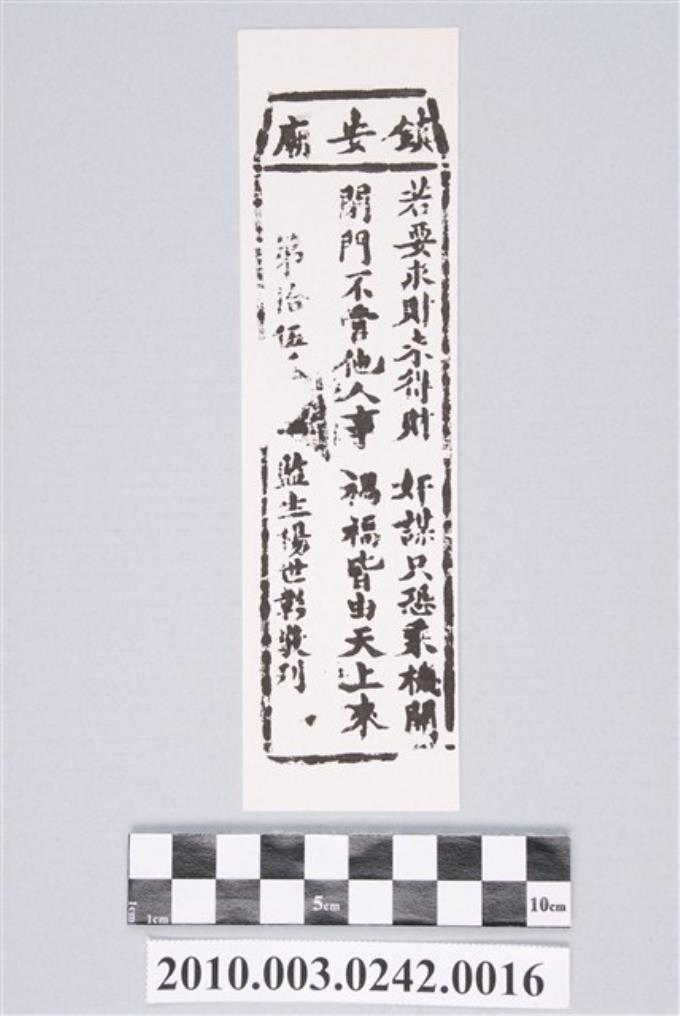 鎮安廟
若要求財亦得財 奸謀只恐乘機開
閉門不管他人事 禍福皆由天上來
第拾伍
監生楊世彰敬刊
1cm 1cm 5cm 10cm
2010.003.0242.0016